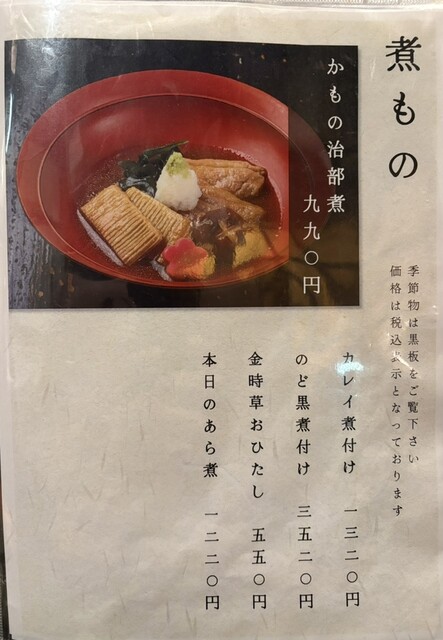 煮もの
季節物は黒板をご覧下さい
価格は税込表示となっております
かもの治部煮
九九〇円
カレイ煮付け 一三二〇円
のど黒煮付け 三五二〇円
金時草おひたし 五五〇円
本日のあら煮 一二二〇円